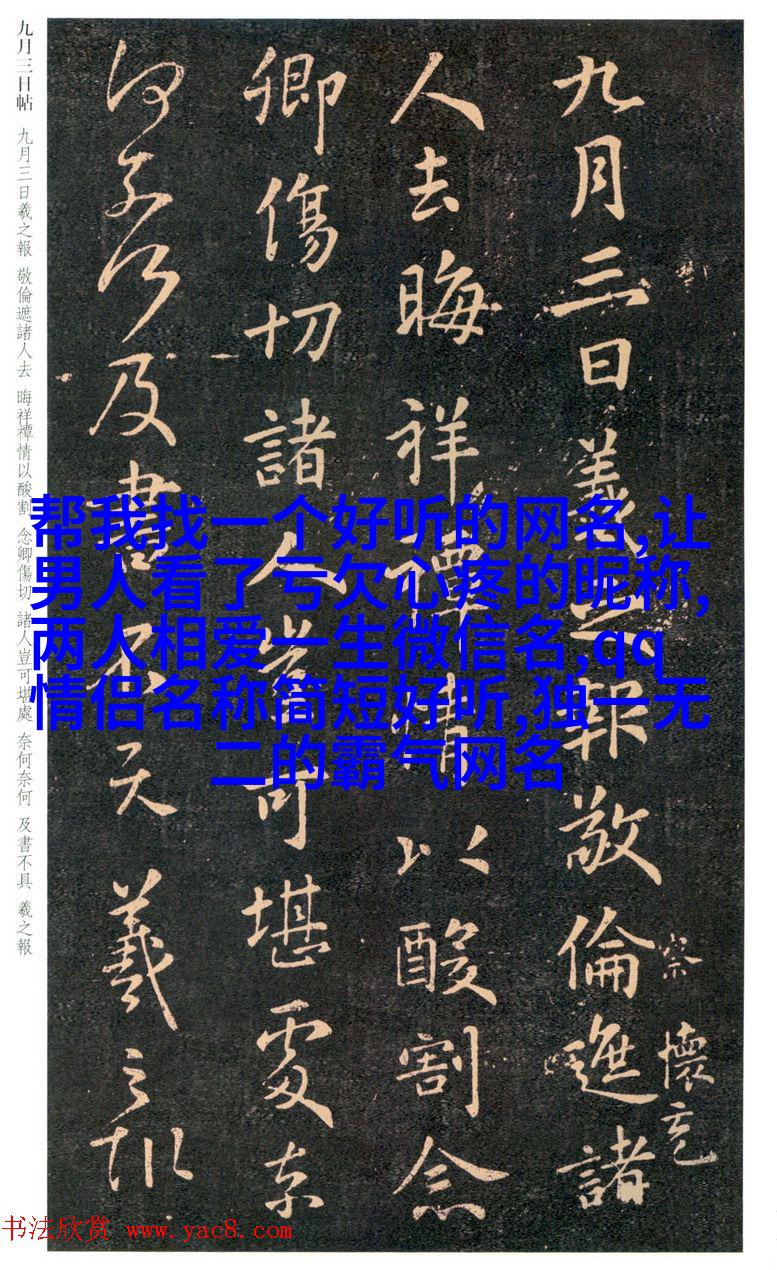 九月三日帖 九月三日羲之報 敬倫遮諸人去 晦祥禫情以酸割 念卿傷切 諸人豈可堪處 奈何奈何 及書不具 羲之報
九月三日羲之報敬倫遮諸
察懷充
人去晦祥禫情以酸割念
卿傷切諸人豈可堪處奈
何奈何及書不具羲之報
帮我找一个好听的网名,让
男人看了亏欠心疼的昵称,
两人相爱一生微信名,qq
情侣名称简短好听,独一无
二的霸气网名
书法欣赏 www.yac8.com